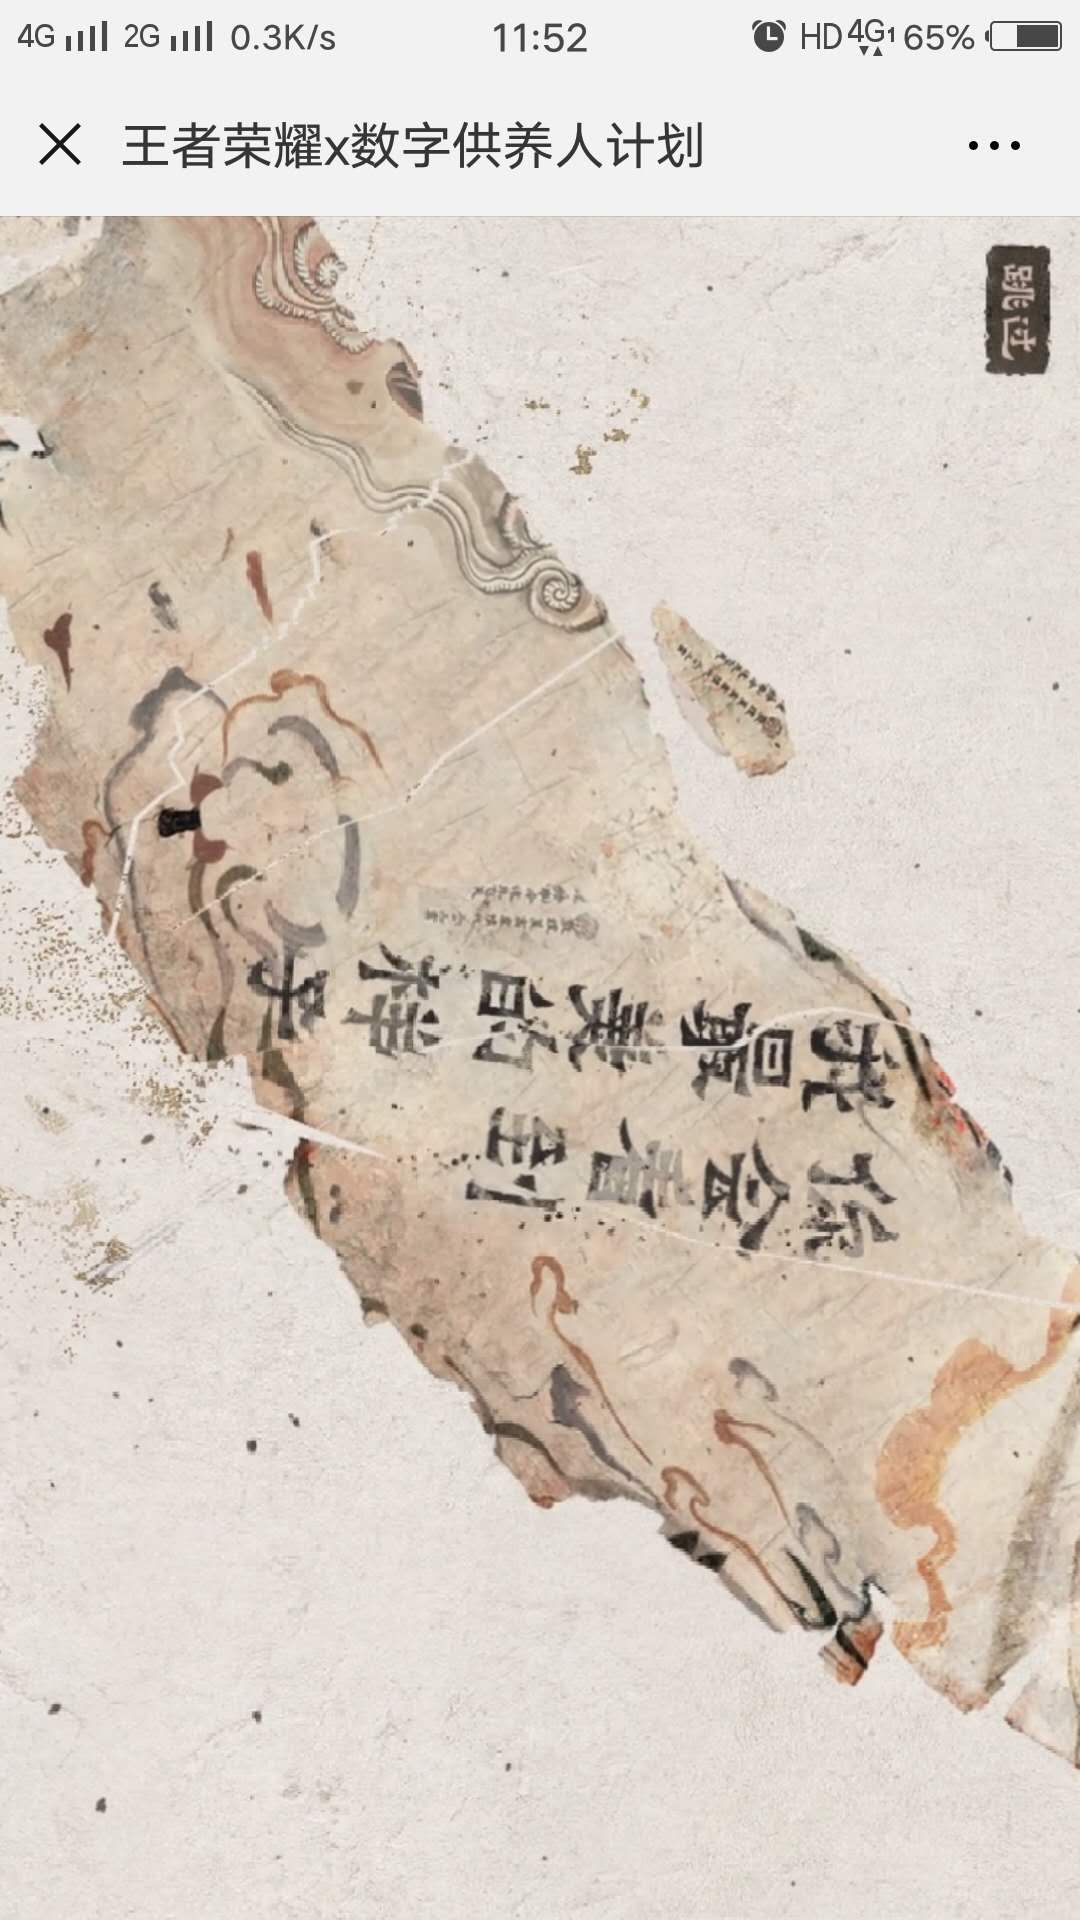 4G 2G 0.3K/s 11:52 HD 4G 1 65%
王者荣耀x数字供养人计划
跳过
你会看到
我最美的样子